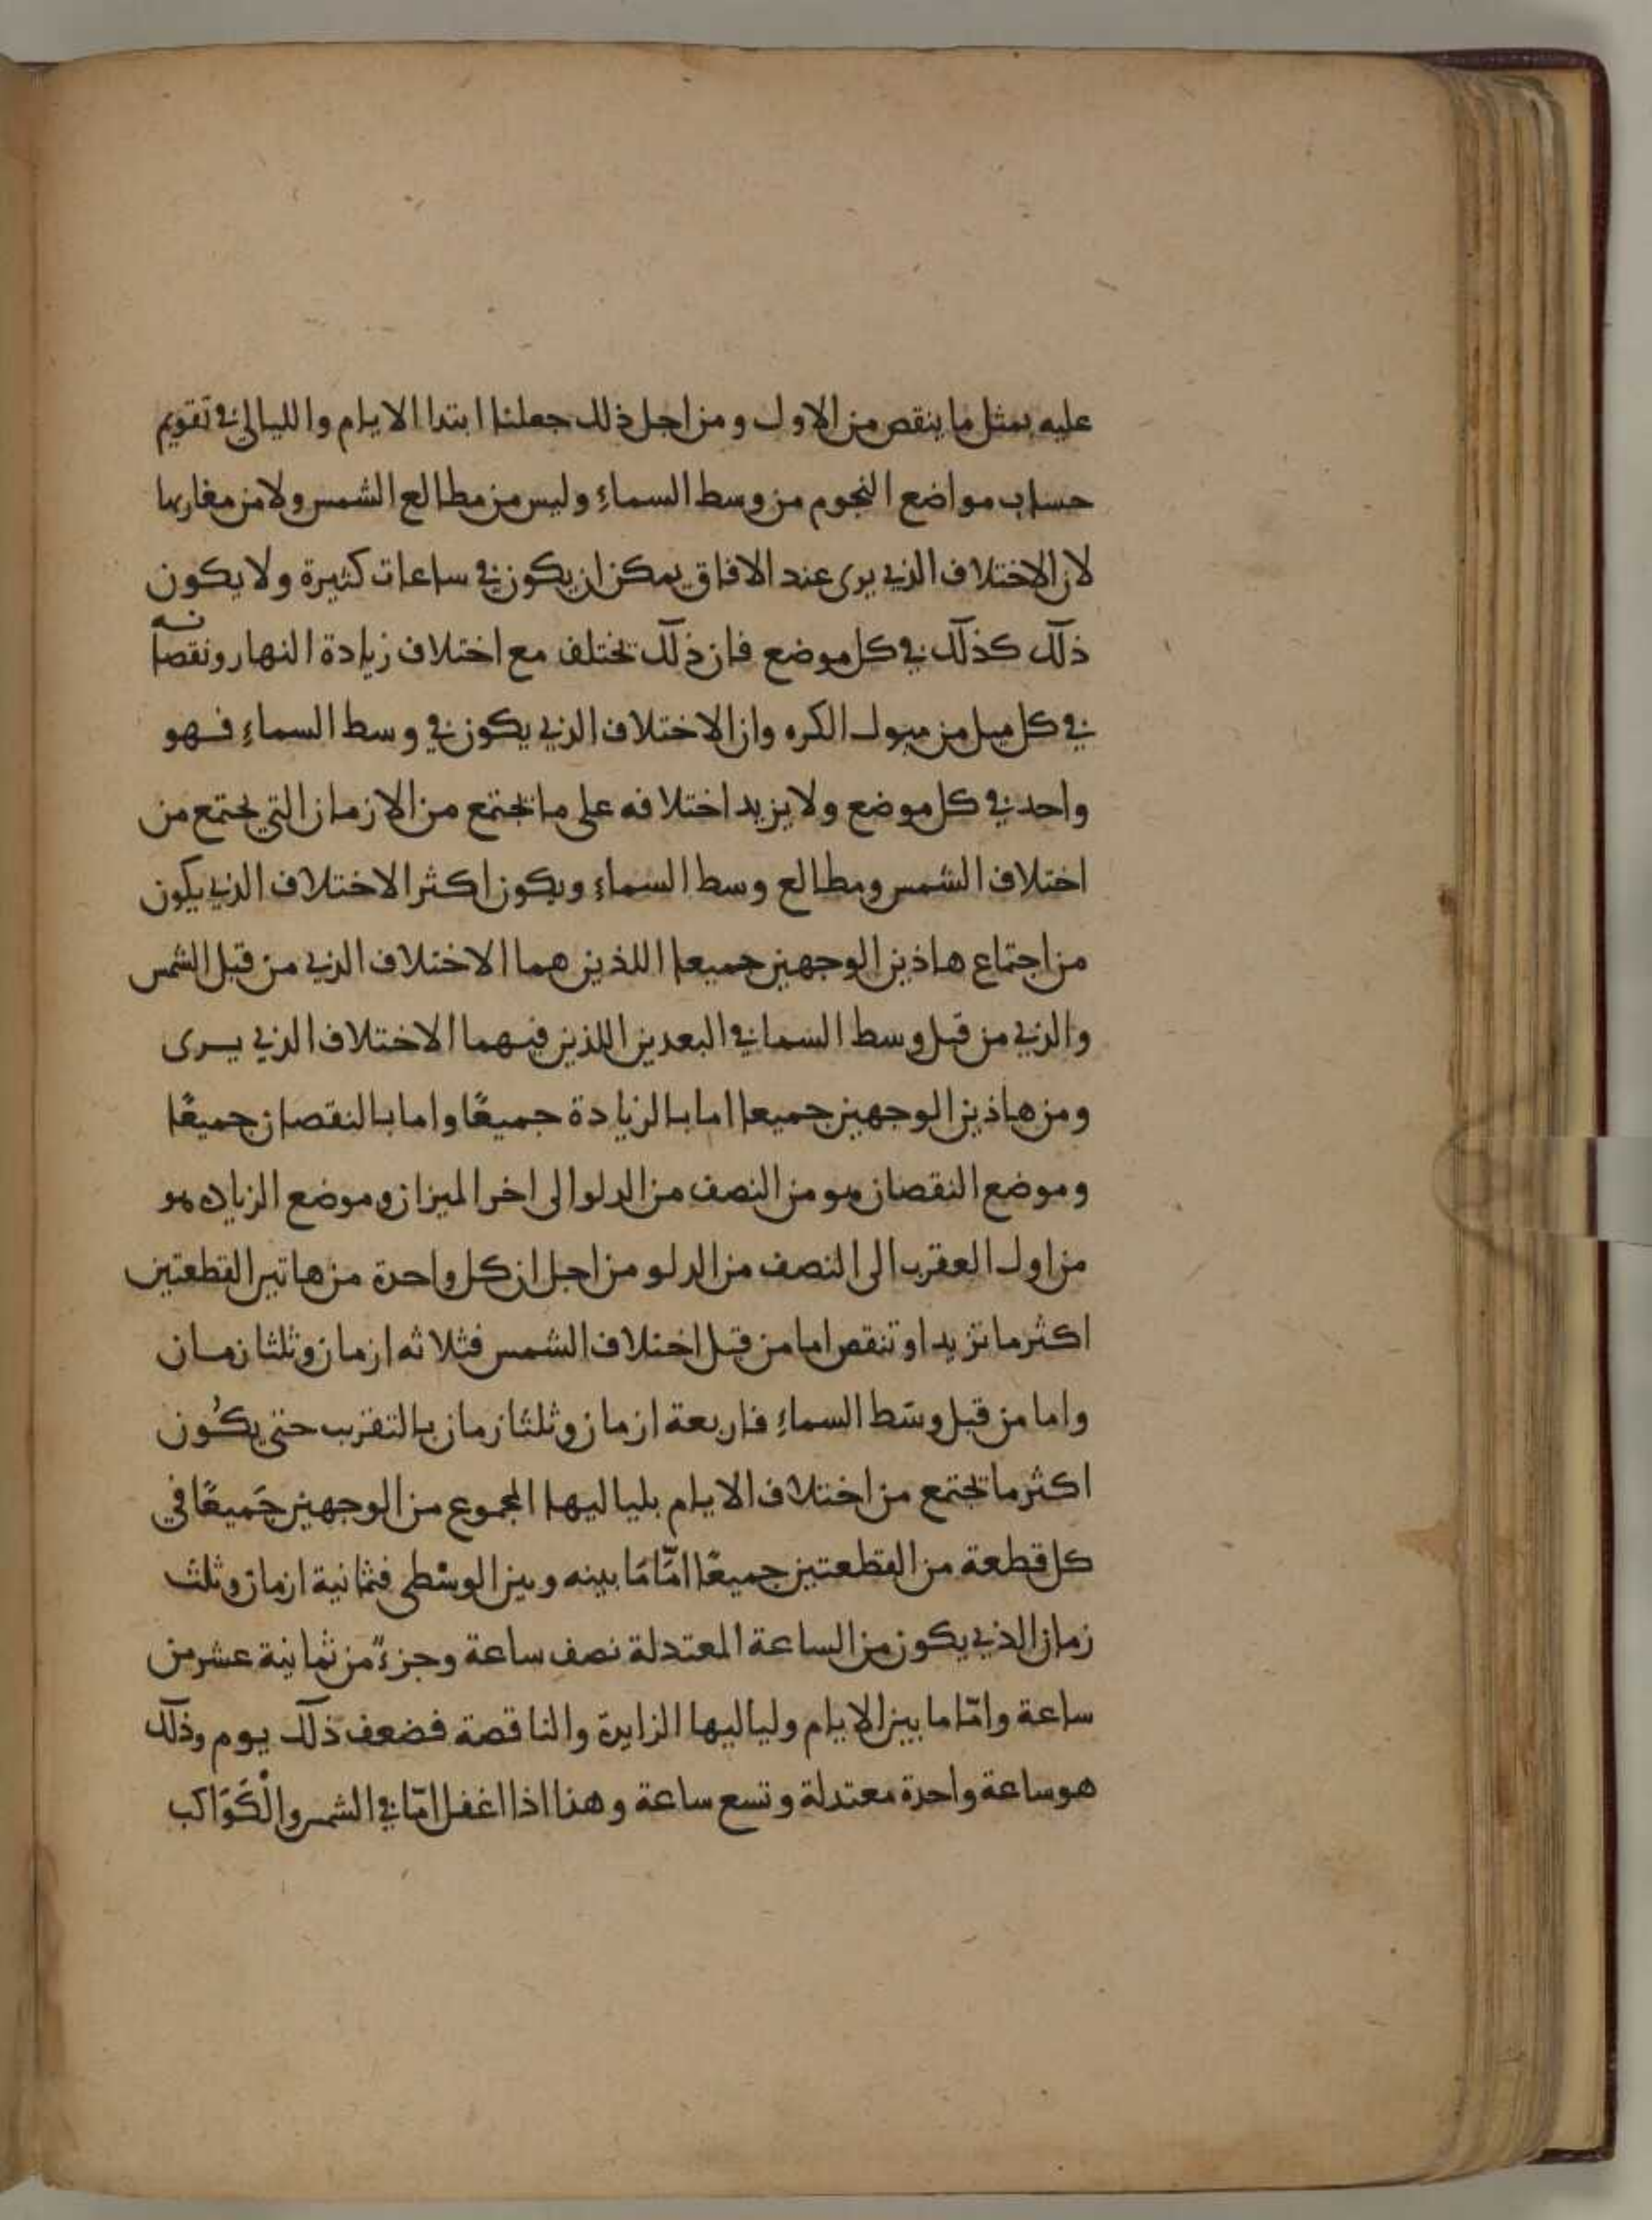 عليه بمثل ما ينقص من الاول ومن اجل ذلك جعلنا ابتدا الايام والليالي في تقويم
حساب مواضع النجوم من وسط السماء وليس من مطالع الشمس ولا من مغاربها
لان الاختلاف الذي يرى عند الافاق يمكن ان يكون في ساعات كثيرة ولا يكون
ذلك كذلك في كل موضع فان ذلك تختلف مع اختلاف زيادة النهار ونقصانه
في كل ميل من ميول الكره وان الاختلاف الذي يكون في وسط السماء فهو
واحد في كل موضع ولا يزيد اختلافه على ما تجتمع من الازمان التي تجتمع من
اختلاف الشمس ومطالع وسط السماء ويكون اكثر الاختلاف الذي يكون
من اجتماع هاذين الوجهين جميعا اللذين هما الاختلاف الذي من قبل الشمس
والذي من قبل وسط السما في البعدين اللذين فيهما الاختلاف الذي يرى
ومن هاذين الوجهين جميعا اما بالزيادة جميعًا واما بالنقصان جميعًا
وموضع النقصان هو من النصف من الدلو الى اخر الميزان وموضع الزياده هو
من اول العقرب الى النصف من الدلو من اجل ان كل واحدة من هاتين القطعتين
اكثر ما تزيد او تنقص اما من قبل اختلاف الشمس فثلاثه ازمان وثلثا زمان
واما من قبل وسَط السماء فاربعة ازمان وثلثا زمان بالتقريب حتى يكُون
اكثر ما تجتمع من اختلاف الايام بلياليها المجموع من الوجهين جَميعًا في
كل قطعة من القطعتين جميعًا امّا مَا بينه وبين الوسْطى فثمانية ازمان وثلث
زمان الذي يكون من الساعة المعتدلة نصف ساعة وجزءً من ثمانية عشر من
ساعة وامّا ما بين الايام ولياليها الزايدة والناقصة فضعف ذلك يوم وذلك
هو ساعة واحدة معتدلة وتسع ساعة وهذا اذا اغفل امّا في الشمس والْكَوَاكب